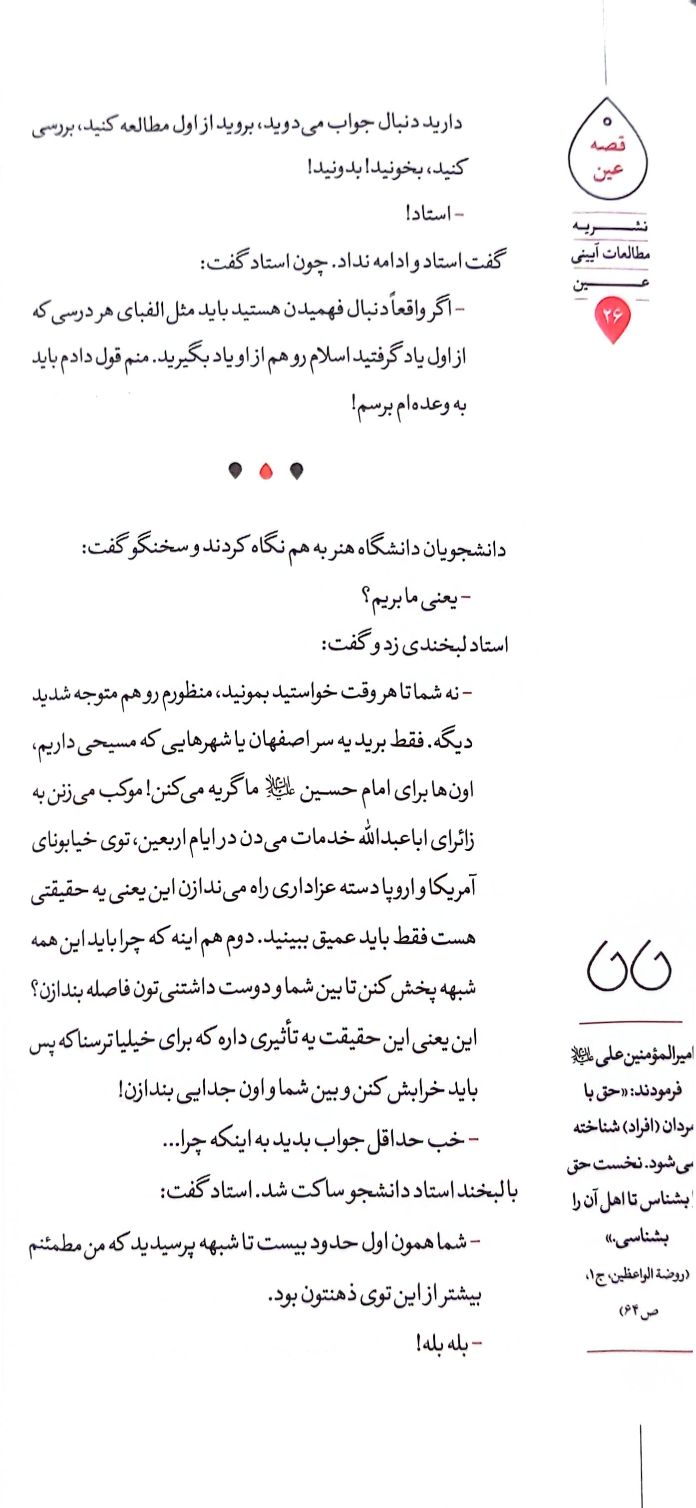 قصه
عین
نشریه
مطالعات آیینی
عین
۲۶
دارید دنبال جواب می‌دوید، بروید از اول مطالعه کنید، بررسی
کنید، بخونید! بدونید!
- استاد!
گفت استاد و ادامه نداد. چون استاد گفت:
- اگر واقعاً دنبال فهمیدن هستید باید مثل الفبای هر درسی که
از اول یاد گرفتید اسلام رو هم از او یاد بگیرید. منم قول دادم باید
به وعده‌ام برسم!
دانشجویان دانشگاه هنر به هم نگاه کردند و سخنگو گفت:
- یعنی ما بریم؟
استاد لبخندی زد و گفت:
- نه شما تا هر وقت خواستید بمونید، منظورم رو هم متوجه شدید
دیگه. فقط برید یه سر اصفهان یا شهرهایی که مسیحی داریم،
اون‌ها برای امام حسین علیه‌السلام ما گریه می‌کنن! موکب می‌زنن به
زائرای اباعبدالله خدمات می‌دن در ایام اربعین، توی خیابونای
آمریکا و اروپا دسته عزاداری راه می‌ندازن این یعنی یه حقیقتی
هست فقط باید عمیق ببینید. دوم هم اینه که چرا باید این همه
شبهه پخش کنن تا بین شما و دوست داشتنی‌تون فاصله بندازن؟
این یعنی این حقیقت یه تأثیری داره که برای خیلیا ترسناکه پس
باید خرابش کنن و بین شما و اون جدایی بندازن!
- خب حداقل جواب بدید به اینکه چرا...
با لبخند استاد دانشجو ساکت شد. استاد گفت:
- شما همون اول حدود بیست تا شبهه پرسیدید که من مطمئنم
بیشتر از این توی ذهنتون بود.
- بله بله!
امیرالمؤمنین علی علیه‌السلام
فرمودند: «حق با
مردان (افراد) شناخته
می‌شود. نخست حق
را بشناس تا اهل آن را
بشناسی.»
(روضة الواعظین، ج۱،
ص۶۴)